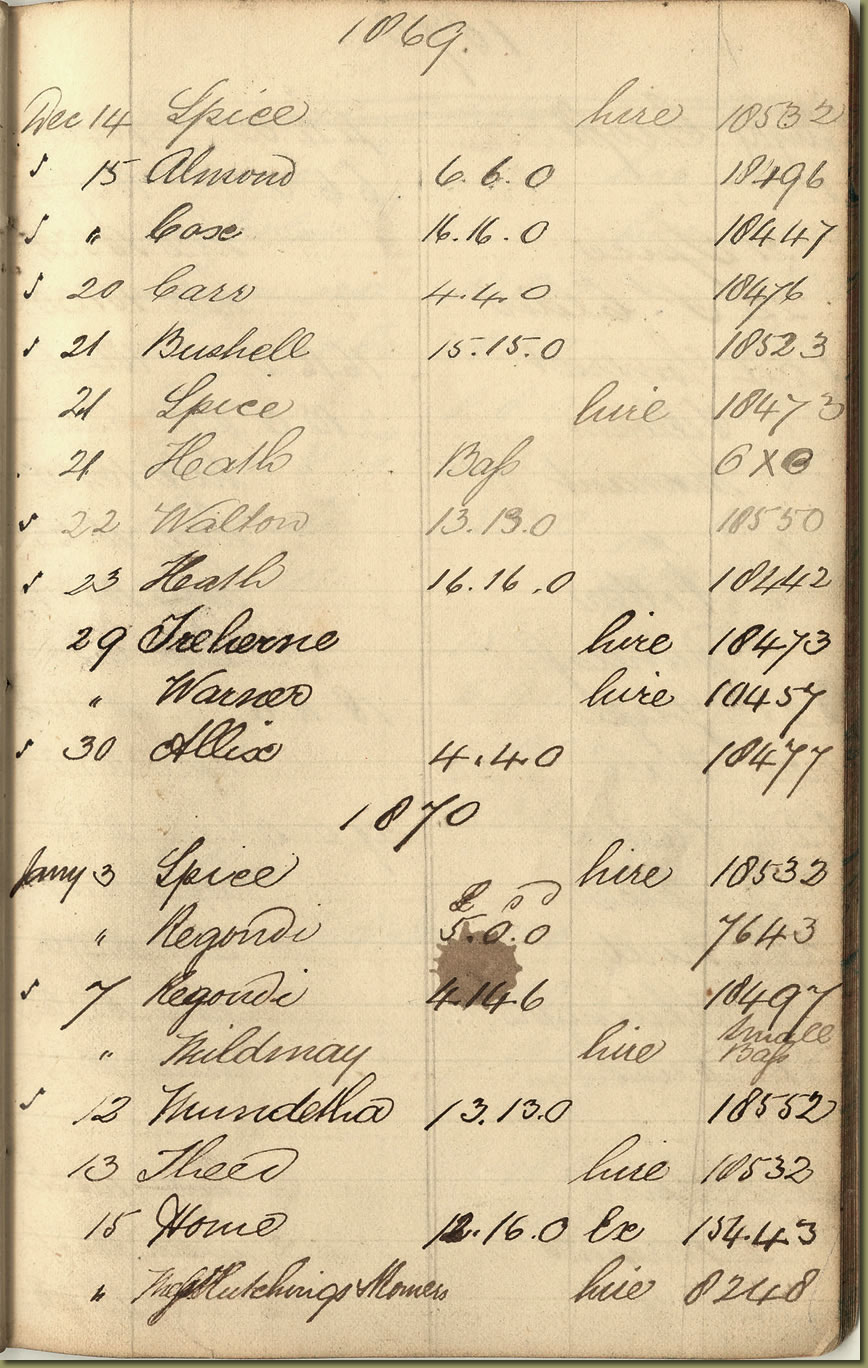 1869.
Dec 14 Spice hire 18532
✓ 15 Almond 6.6.0 18496
✓ " Cox 16.16.0 18447
✓ 20 Carr 4.4.0 18476
✓ 21 Bushell 15.15.0 18523
21 Spice hire 18473
21 Heath Bass 6X
✓ 22 Walton 13.13.0 18550
✓ 23 Heath 16.16.0 18442
29 Treherne hire 18473
" Warner hire 18457
✓ 30 Allix 4.4.0 18477
1870
Jany 3 Spice hire 18532
£ s d
" Regondi 5.0.0 7643
✓ 7 Regondi 4.14.6 18497
" Mildmay hire Small
Bass
✓ 12 13.13.0 18552
13 Theed hire 18532
15 Home 12.16.0 Ex 15443
" Hutchings hire 8248